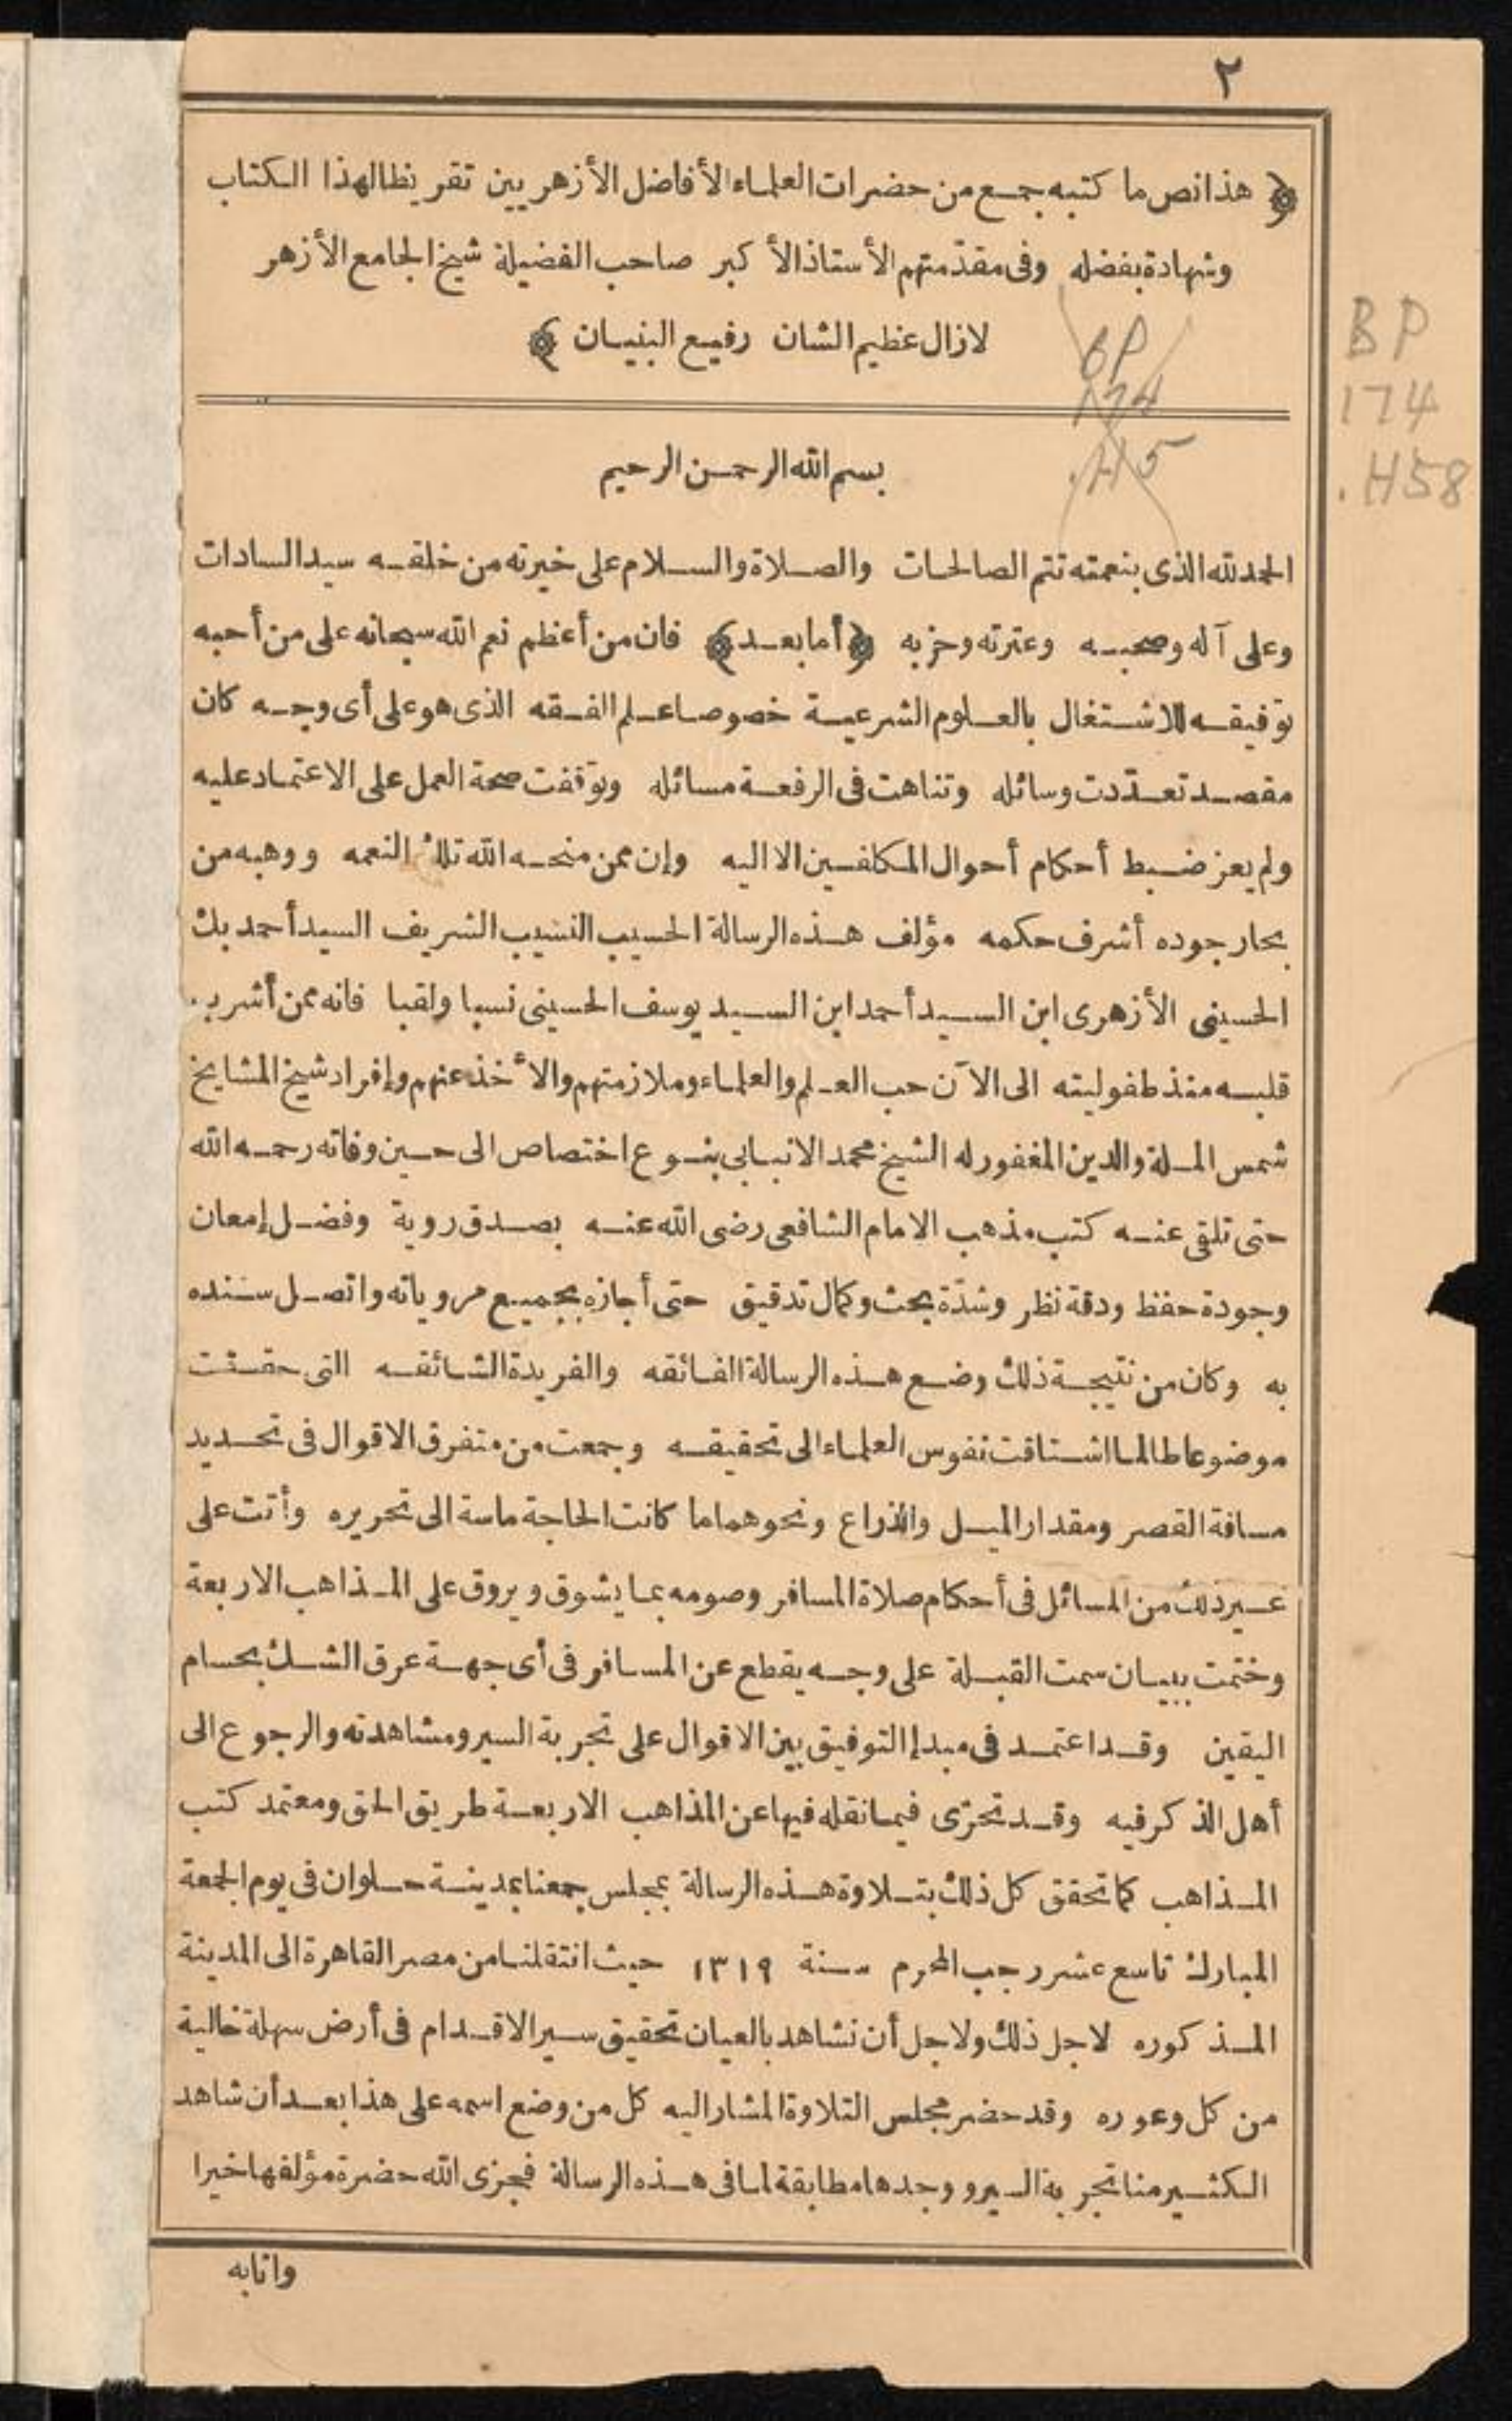 ٢
﴿ هذا نص ما كتبه جمع من حضرات العلماء الأفاضل الأزهريين تقريظا لهذا الكتاب
وشهادة بفضله وفى مقدّمتهم الأستاذ الأكبر صاحب الفضيلة شيخ الجامع الأزهر
لازال عظيم الشان رفيع البنيان ﴾
BP
174
.H5
BP
174
.H58
بسم الله الرحمن الرحيم
الحمد لله الذى بنعمته تتم الصالحات والصلاة والسلام على خيرته من خلقه سيد السادات
وعلى آله وصحبه وعترته وحزبه ﴿أما بعد﴾ فان من أعظم نعم الله سبحانه على من أحبه
توفيقه للاشتغال بالعلوم الشرعية خصوصا علم الفقه الذى هو على أى وجه كان
مقصد تعدّدت وسائله وتناهت فى الرفعة مسائله وتوقفت صحة العمل على الاعتماد عليه
ولم يعز ضبط أحكام أحوال المكلفين الا اليه وإن ممن منحه الله تلك النعمه ووهبه من
بحار جوده أشرف حكمه مؤلف هذه الرسالة الحسيب النسيب الشريف السيد أحمد بك
الحسينى الأزهرى ابن السيد أحمد ابن السيد يوسف الحسينى نسبا ولقبا فانه ممن أشرب
قلبه منذ طفوليته الى الآن حب العلم والعلماء وملازمتهم والأخذ عنهم وإفراد شيخ المشايخ
شمس الملة والدين المغفور له الشيخ محمد الانبابى بنوع اختصاص الى حين وفاته رحمه الله
حتى تلقى عنه كتب مذهب الامام الشافعى رضى الله عنه بصدق روية وفضل إمعان
وجودة حفظ ودقة نظر وشدّة بحث وكمال تدقيق حتى أجازه بجميع مروياته واتصل سنده
به وكان من نتيجة ذلك وضع هذه الرسالة الفائقه والفريدة الشائقه التى حققت
موضوعا طالما اشتاقت نفوس العلماء الى تحقيقه وجمعت من متفرق الاقوال فى تحديد
مسافة القصر ومقدار الميل والذراع ونحوهما ما كانت الحاجة ماسة الى تحريره وأتت على
غير ذلك من المسائل فى أحكام صلاة المسافر وصومه بما يشوق ويروق على المذاهب الاربعة
وختمت ببيان سمت القبلة على وجه يقطع عن المسافر فى أى جهة عرق الشك بحسام
اليقين وقد اعتمد فى مبدإ التوفيق بين الاقوال على تجربة السير ومشاهدته والرجوع الى
أهل الذكر فيه وقد تحرّى فيما نقله فيها عن المذاهب الاربعة طريق الحق ومعتمد كتب
المذاهب كما تحقق كل ذلك بتلاوة هذه الرسالة بمجلس جمعنا بمدينة حلوان فى يوم الجمعة
المبارك تاسع عشر رجب المحرم سنة ١٣١٩ حيث انتقلنا من مصر القاهرة الى المدينة
المذكوره لاجل ذلك ولاجل أن نشاهد بالعيان تحقيق سير الاقدام فى أرض سهلة خالية
من كل وعوره وقد حضر مجلس التلاوة المشار اليه كل من وضع اسمه على هذا بعد أن شاهد
الكثير منا تجربة السير ووجدها مطابقة لما فى هذه الرسالة فجزى الله حضرة مؤلفها خيرا
واثابه